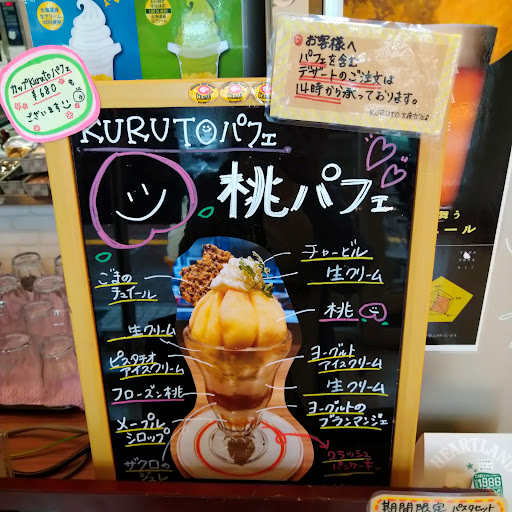 カップKurutoパフェ
¥680も
ございます
お客様へ
パフェを含む
デザートのご注文は
14時から承っております。
KURUTO
KURUTOパフェ
桃パフェ
チャービル
生クリーム
桃
ヨーグルト
アイスクリーム
生クリーム
ヨーグルトの
ブランマンジェ
クラッシュ
パンケーキ
ごまの
チュイール
生クリーム
ピスタチオ
アイスクリーム
フローズン桃
メープル
シロップ
ザクロの
ジュレ
HEARTLAND
1986
期間限定 パスタセット